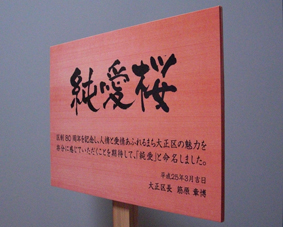 純愛桜
区制80周年を記念し、人情と愛情あふれるまち大正区の魅力を
存分に感じていただくことを期待して、「純愛」と命名しました。
平成25年3月吉日
大正区長 筋原 章博